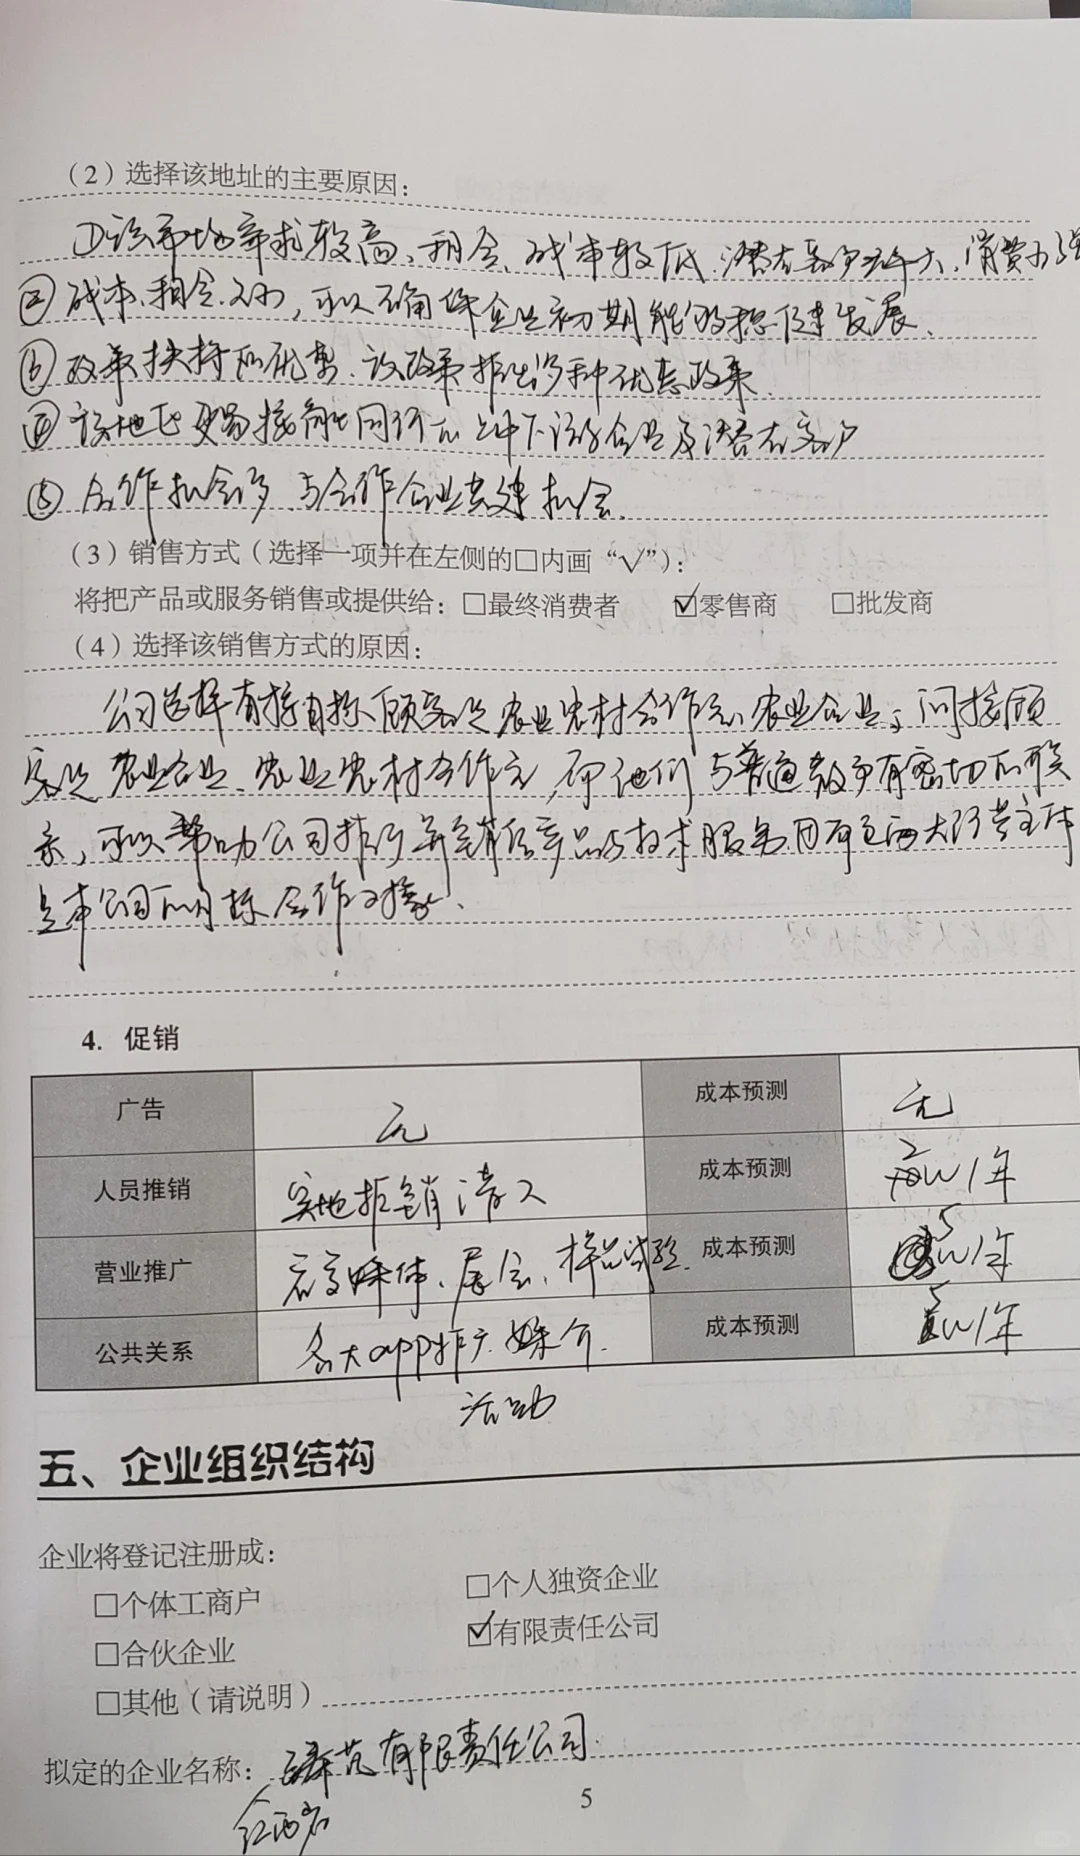 （2）选择该地址的主要原因：
①该市场需求较高、租金、成本较低、潜在客户庞大，消费力强
②成本、租金、人力，可以确保企业初期能够稳健发展、
政策扶持的优势、该政策推出多种优惠政策、
④该地区更易接触同行的上中下游企业及潜在客户
⑤合作机会多、与合作企业共建机会、
（3）销售方式（选择一项并在左侧的□内画“√”）：
将把产品或服务销售或提供给：□最终消费者 ☑零售商 □批发商
（4）选择该销售方式的原因：
公司选择直接目标顾客是农业农村合作社、农业企业；间接顾
客是农业企业、农业农村合作社，而他们与普通散户有密切的联
系，可以帮助公司推行并销售产品与技术服务，因有这两大经营主体
是本公司的目标合作对象、
4. 促销
广告 无 成本预测 无
人员推销 实地推销 成本预测 2w/年
营业推广 媒体、展会、样品试验、 成本预测 5w/年
公共关系 各大app推广、媒介、 成本预测 5w/年
活动
五、企业组织结构
企业将登记注册成：
□个体工商户 □个人独资企业
□合伙企业 ☑有限责任公司
□其他（请说明）
拟定的企业名称： 有限责任公司
5